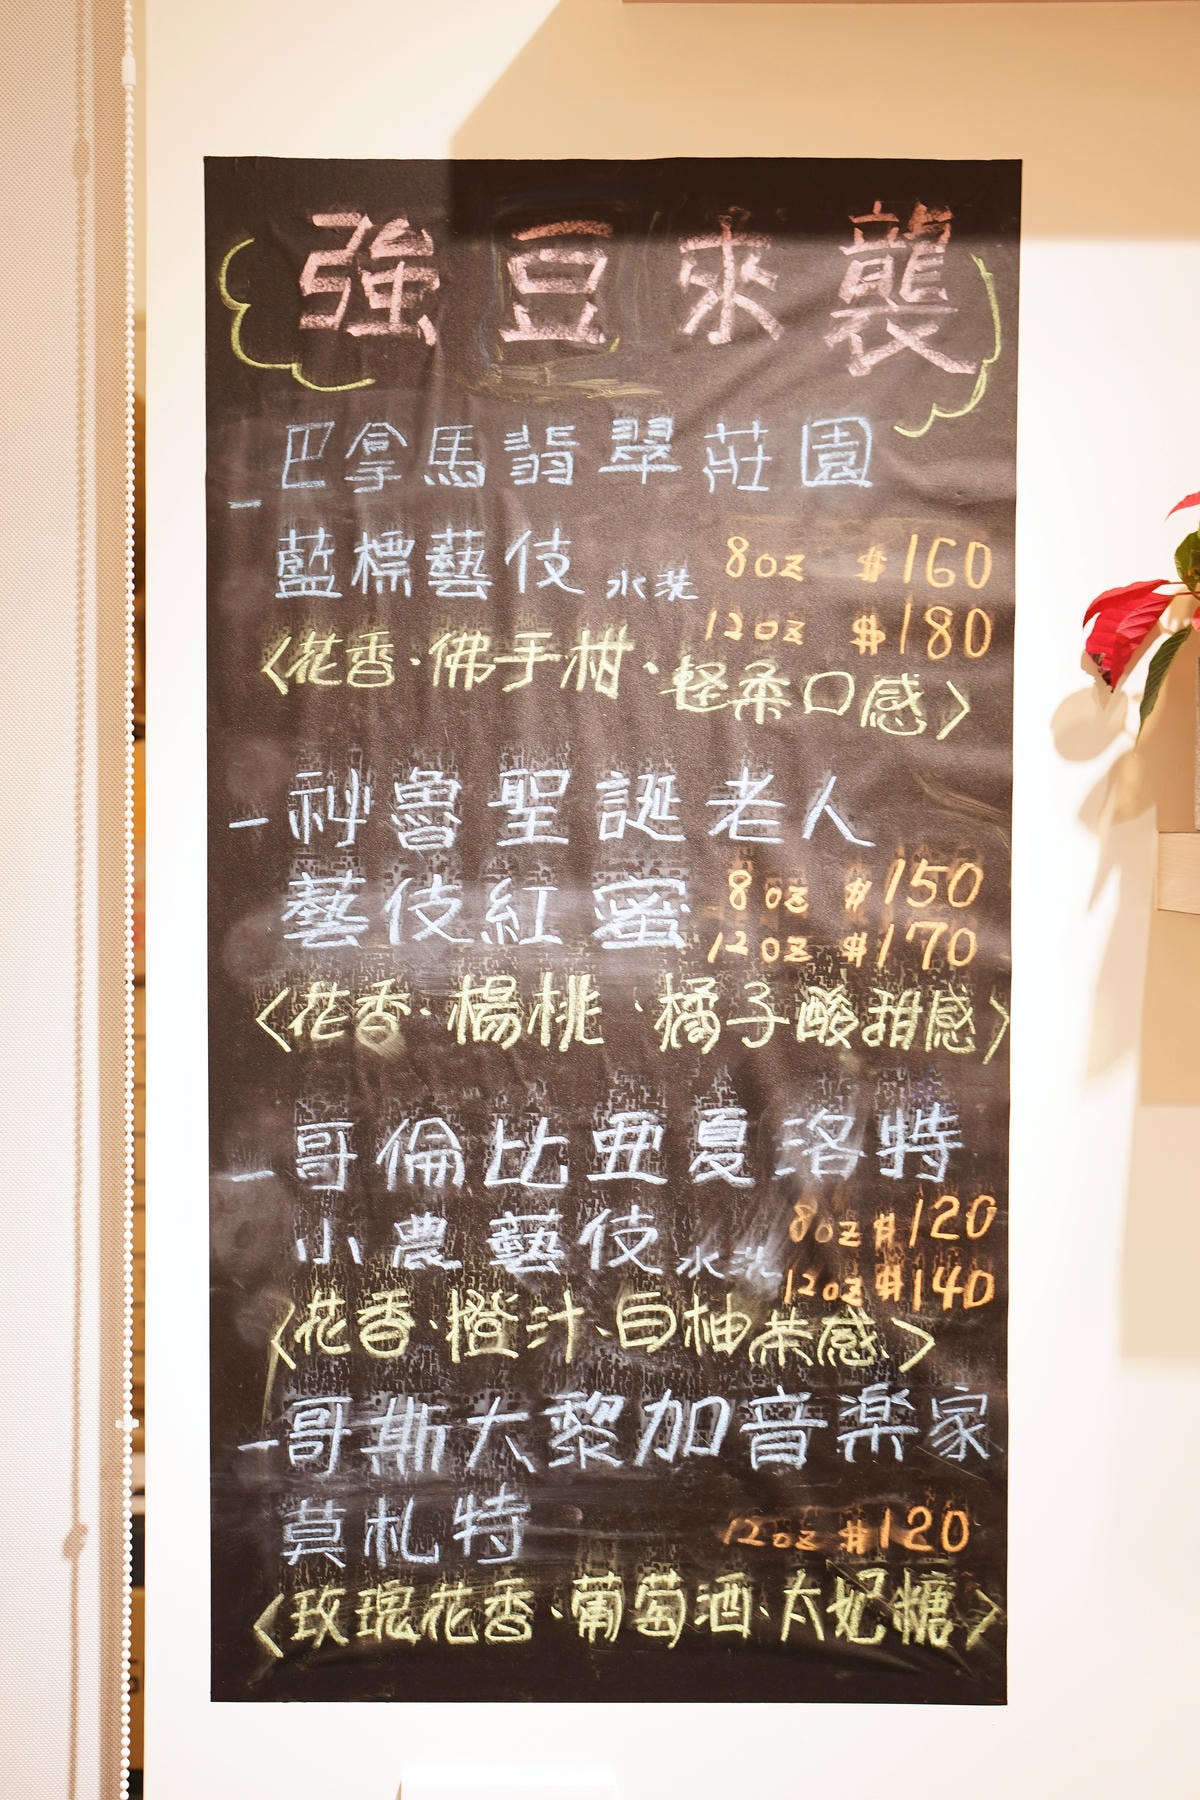 強豆來襲
- 巴拿馬翡翠莊園
藍標藝伎 水洗 8oz $160
12oz $180
〈花香·佛手柑、軽柔口感〉
- 祕魯聖誕老人
藝伎紅蜜 8oz $150
12oz $170
〈花香·楊桃·橘子酸甜感〉
- 哥倫比亞夏洛特
小農藝伎 水洗 8oz $120
12oz $140
〈花香·橙汁、白柚茶感〉
- 哥斯大黎加音楽家
莫札特 12oz $120
〈玫瑰花香·葡萄酒·太妃糖〉